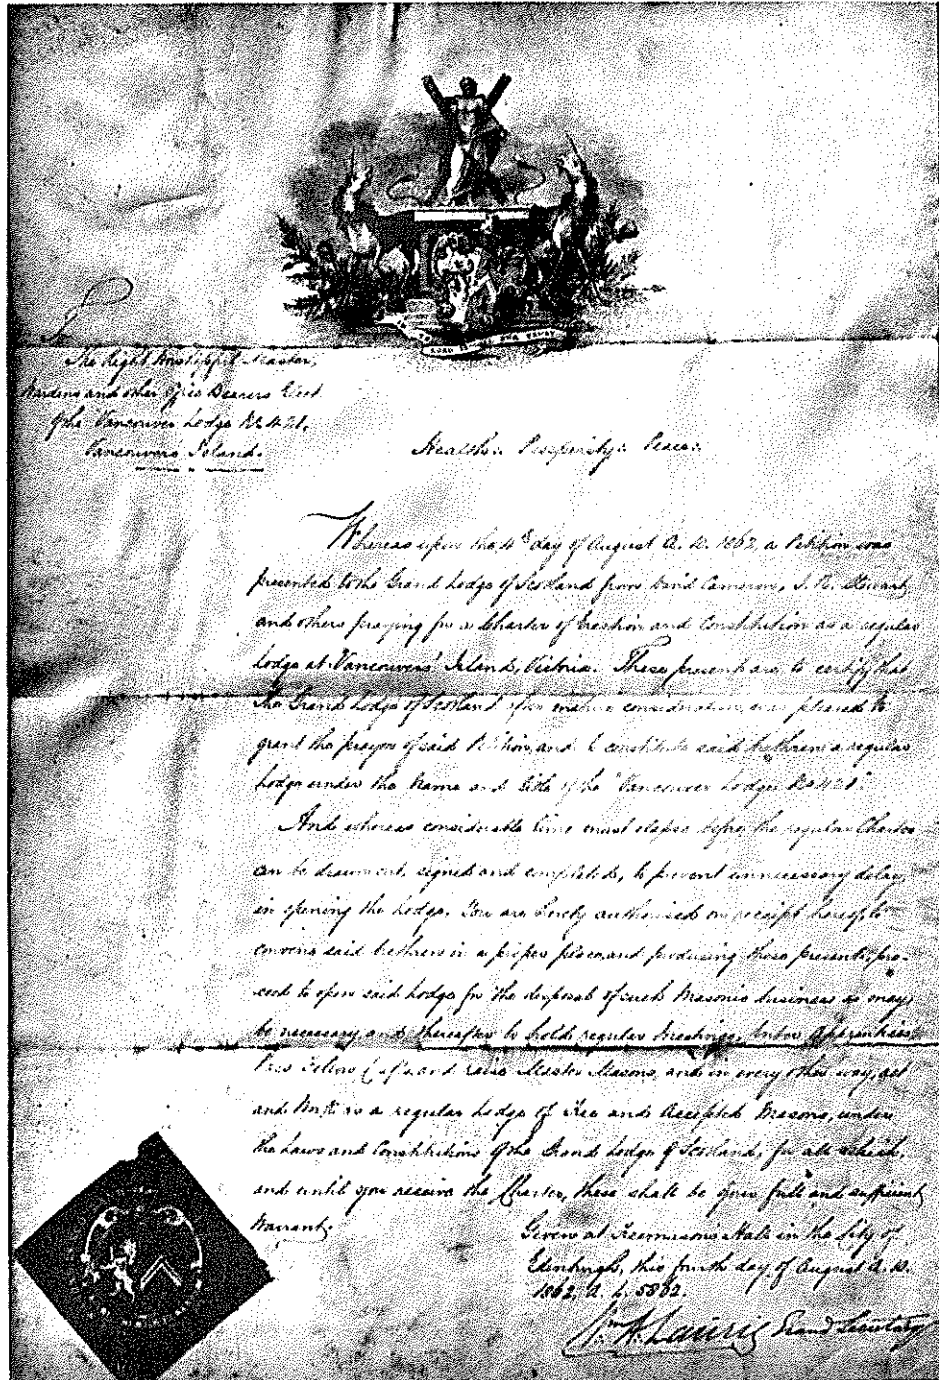 The Right Worshipful Master,
Wardens and other Office Bearers Elect
of the Vancouver Lodge No. 421.
Vancouvers Island.
Health. Prosperity. Peace.
Whereas upon the 4th day of August A.D. 1862, a Petition was
presented to the Grand Lodge of Scotland from David Cameron, Stewart
and others praying for a Charter of Erection and Constitution as a regular
Lodge at Vancouvers' Island, Victoria. These presents are to certify that
The Grand Lodge of Scotland after mature consideration, was pleased to
grant the prayer of said Petition, and to constitute said brethren a regular
Lodge under the name and title of the "Vancouver Lodge No 421."
And whereas considerable time must elapse before the regular Charter
can be drawn out, signed and completed, to prevent unnecessary delay
in opening the Lodge. You are hereby authorised on receipt hereof, to
convene said brethren in a proper place and producing these presents, pro-
ceed to open said Lodge for the disposal of such Masonic business as may
be necessary and thereafter to hold regular meetings, Enter Apprentices
Pass Fellows Craft, and raise Master Masons, and in every other way, act
and Work as a regular Lodge of Free and Accepted Masons, under
the Laws and Constitutions of the Grand Lodge of Scotland, for all which,
and until you receive the Charter, these shall be your full and sufficient
Warrant.
Given at Freemasons Hall in the City of
Edinburgh, this fourth day of August A.D.
1862, A.L. 5862.
Wm. A. Laurie Grand Secretary